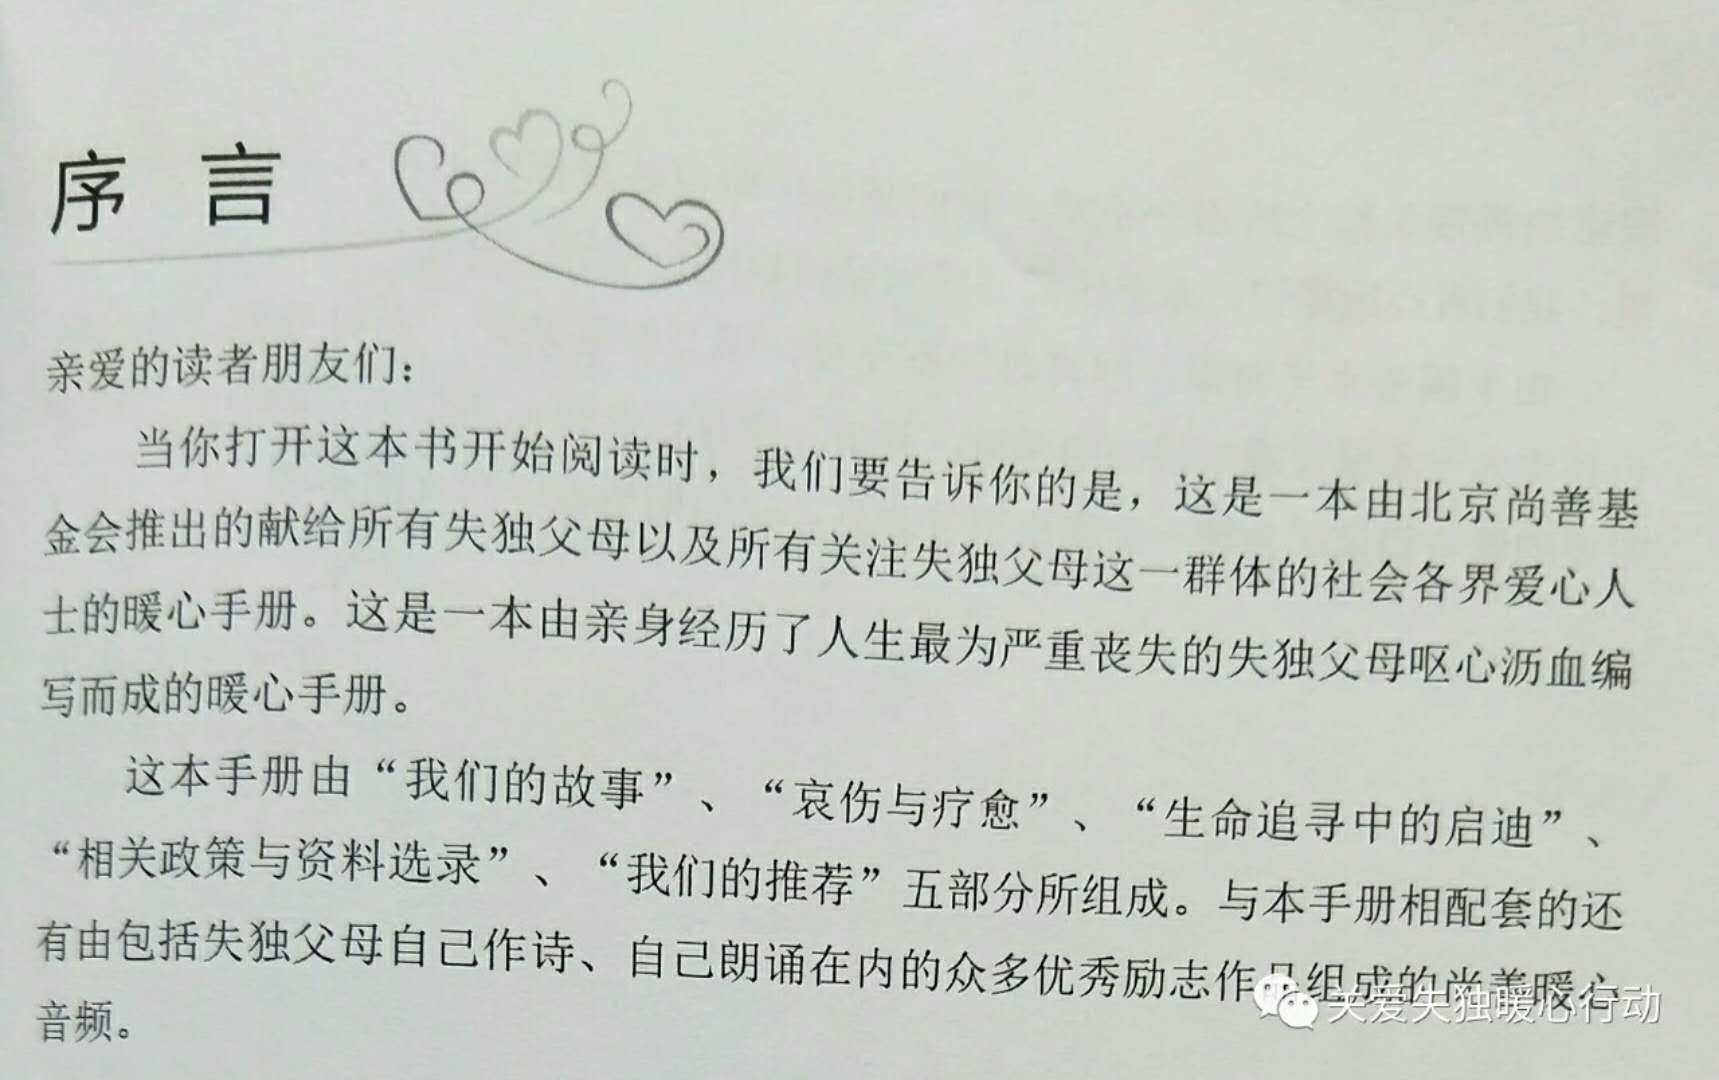 序言
亲爱的读者朋友们：
当你打开这本书开始阅读时，我们要告诉你的是，这是一本由北京尚善基
金会推出的献给所有失独父母以及所有关注失独父母这一群体的社会各界爱心人
士的暖心手册。这是一本由亲身经历了人生最为严重丧失的失独父母呕心沥血编
写而成的暖心手册。
这本手册由“我们的故事”、“哀伤与疗愈”、“生命追寻中的启迪”、
“相关政策与资料选录”、“我们的推荐”五部分所组成。与本手册相配套的还
有由包括失独父母自己作诗、自己朗诵在内的众多优秀励志作品组成的尚善暖心
音频。
关爱失独暖心行动